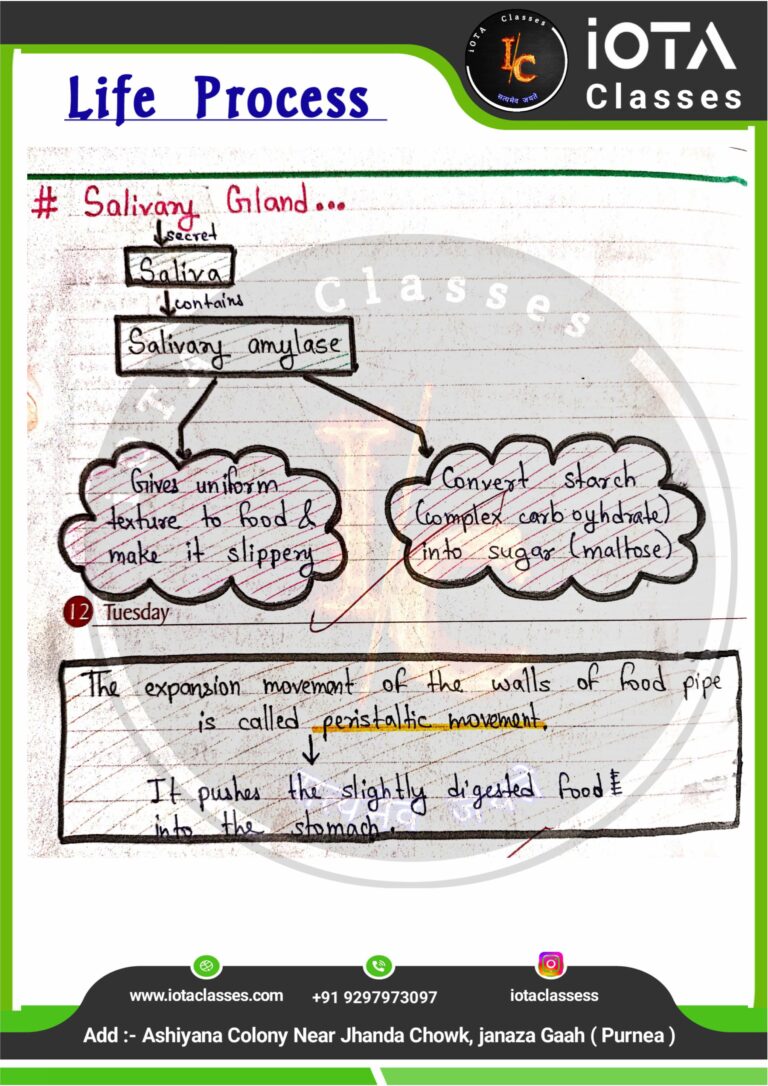 iOTA Classes
I/C
सत्यमेव जयते
iOTA
Classes
Life Process
# Salivary Gland...
secret
Saliva
contains
Salivary amylase
iOTA Classes
I/C
Gives uniform
texture to food &
make it slippery
Convert starch
(complex carboyhdrate)
into sugar (maltose)
12 Tuesday
The expansion movement of the walls of food pipe
is called peristaltic movement.
It pushes the slightly digested food
into the stomach.
www.iotaclasses.com
+91 9297973097
iotaclassess
Add :- Ashiyana Colony Near Jhanda Chowk, janaza Gaah ( Purnea )